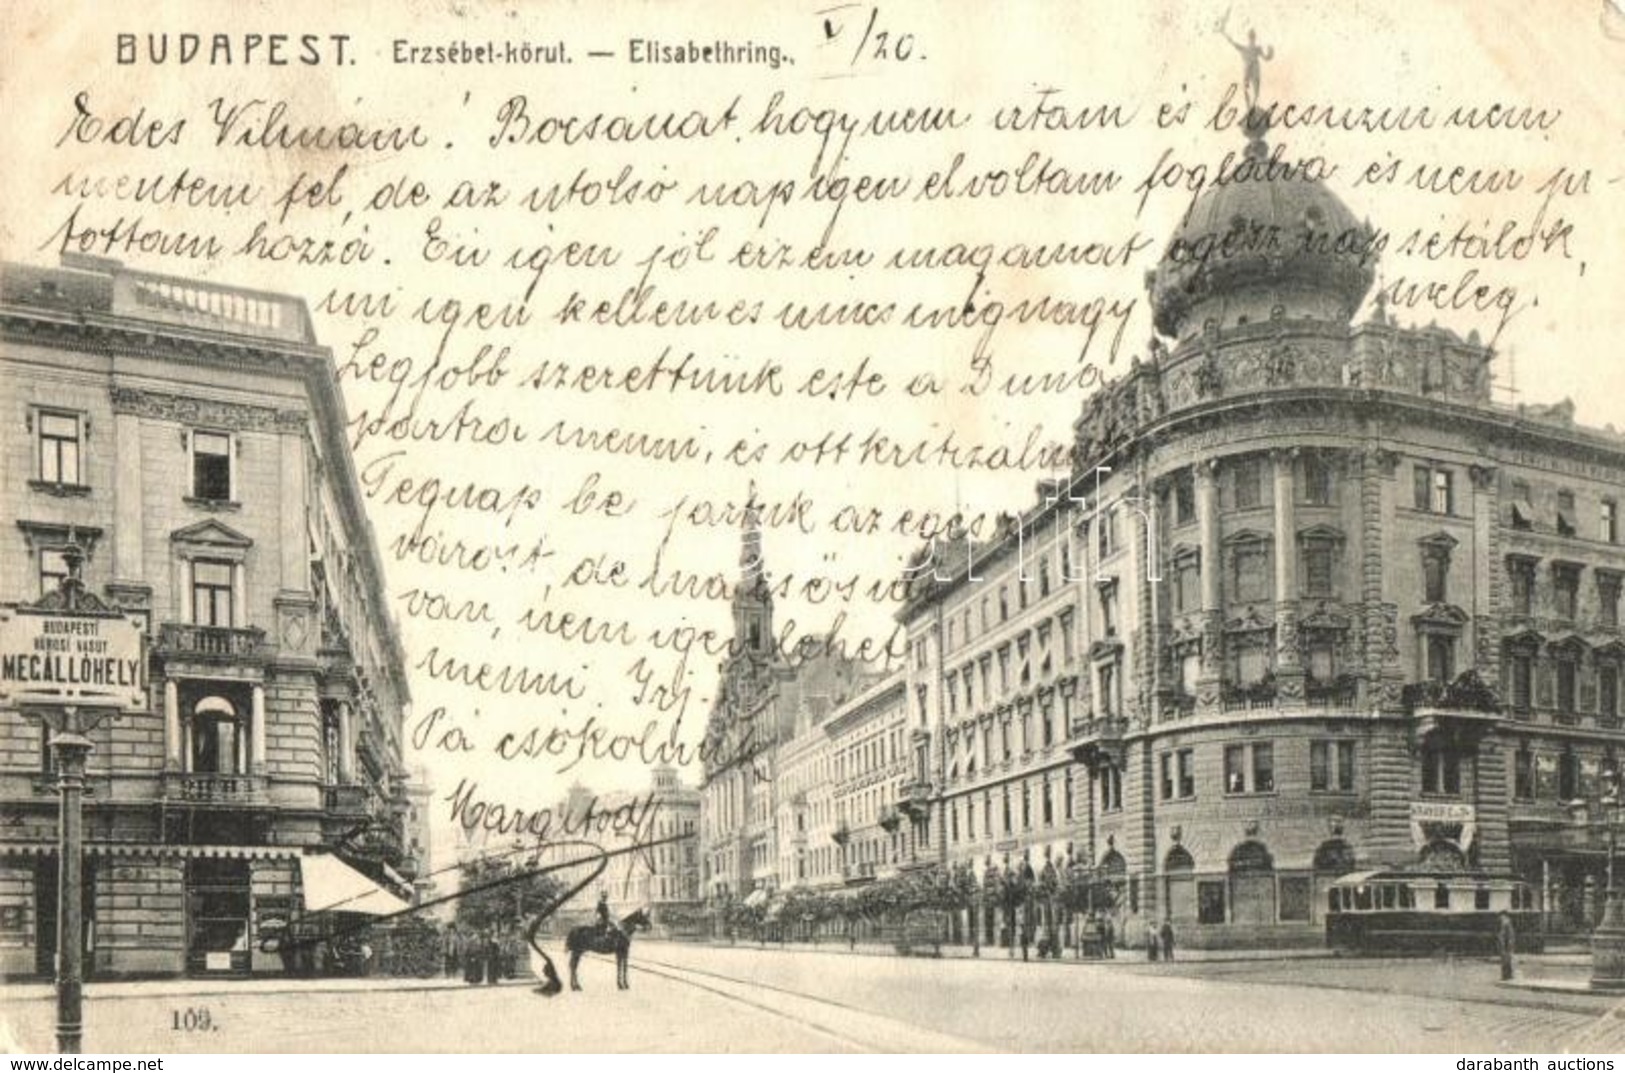 BUDAPEST. Erzsébet-körut. — Elisabethring. V/20.
Edes Vilmám! Bocsánat, hogy nem irtam és bucsuzni nem
mentem fel, de az utolsó nap igen el voltam foglalva és nem ju-
tottam hozzá. Én igen jól érzem magamat egész nap sétálok,
mi igen kellemes nincs még nagy meleg.
Legjobb szerettünk este a Duna
partra menni, és ott kritizálni
Tegnap be jartuk az egész
várost, de ma és ős idő
van, nem igen lehet
menni. Irj.
Pá csókolunk
Margitod
BUDAPESTI
VÁROSI VASUT
MEGÁLLÓHELY
109.
darabanth auctions